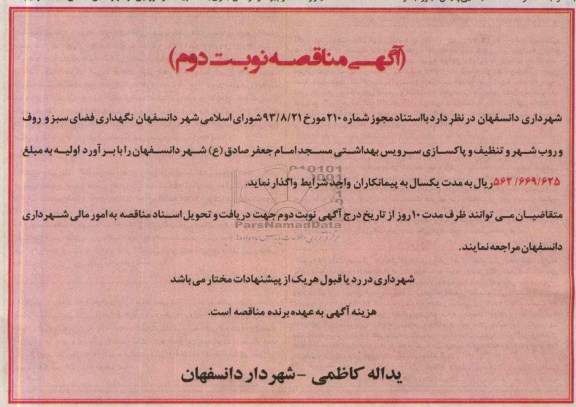 (آگهی مناقصه نوبت دوم)
شهرداری دانسفهان در نظر دارد بااستناد مجوز شماره ۲۱۰ مورخ ۹۳/۸/۲۱ شورای اسلامی شهر دانسفهان نگهداری فضای سبز و روف
و روب شهر و تنظیف و پاکسازی سرویس بهداشتی مسجد امام جعفر صادق (ع) شهر دانسفهان را با بر آورد اولیه به مبلغ
۵۶۲/۶۶۹/۶۲۵ ریال به مدت یکسال به پیمانکاران واجد شرایط واگذار نماید.
متقاضیان می توانند ظرف مدت ۱۰ روز از تاریخ درج آگهی نوبت دوم جهت دریافت و تحویل اسناد مناقصه به امور مالی شهرداری
دانسفهان مراجعه نمایند.
شهرداری در رد یا قبول هر یک از پیشنهادات مختار می باشد
هزینه آگهی به عهده برنده مناقصه است.
یداله کاظمی - شهردار دانسفهان
ParsNamadData